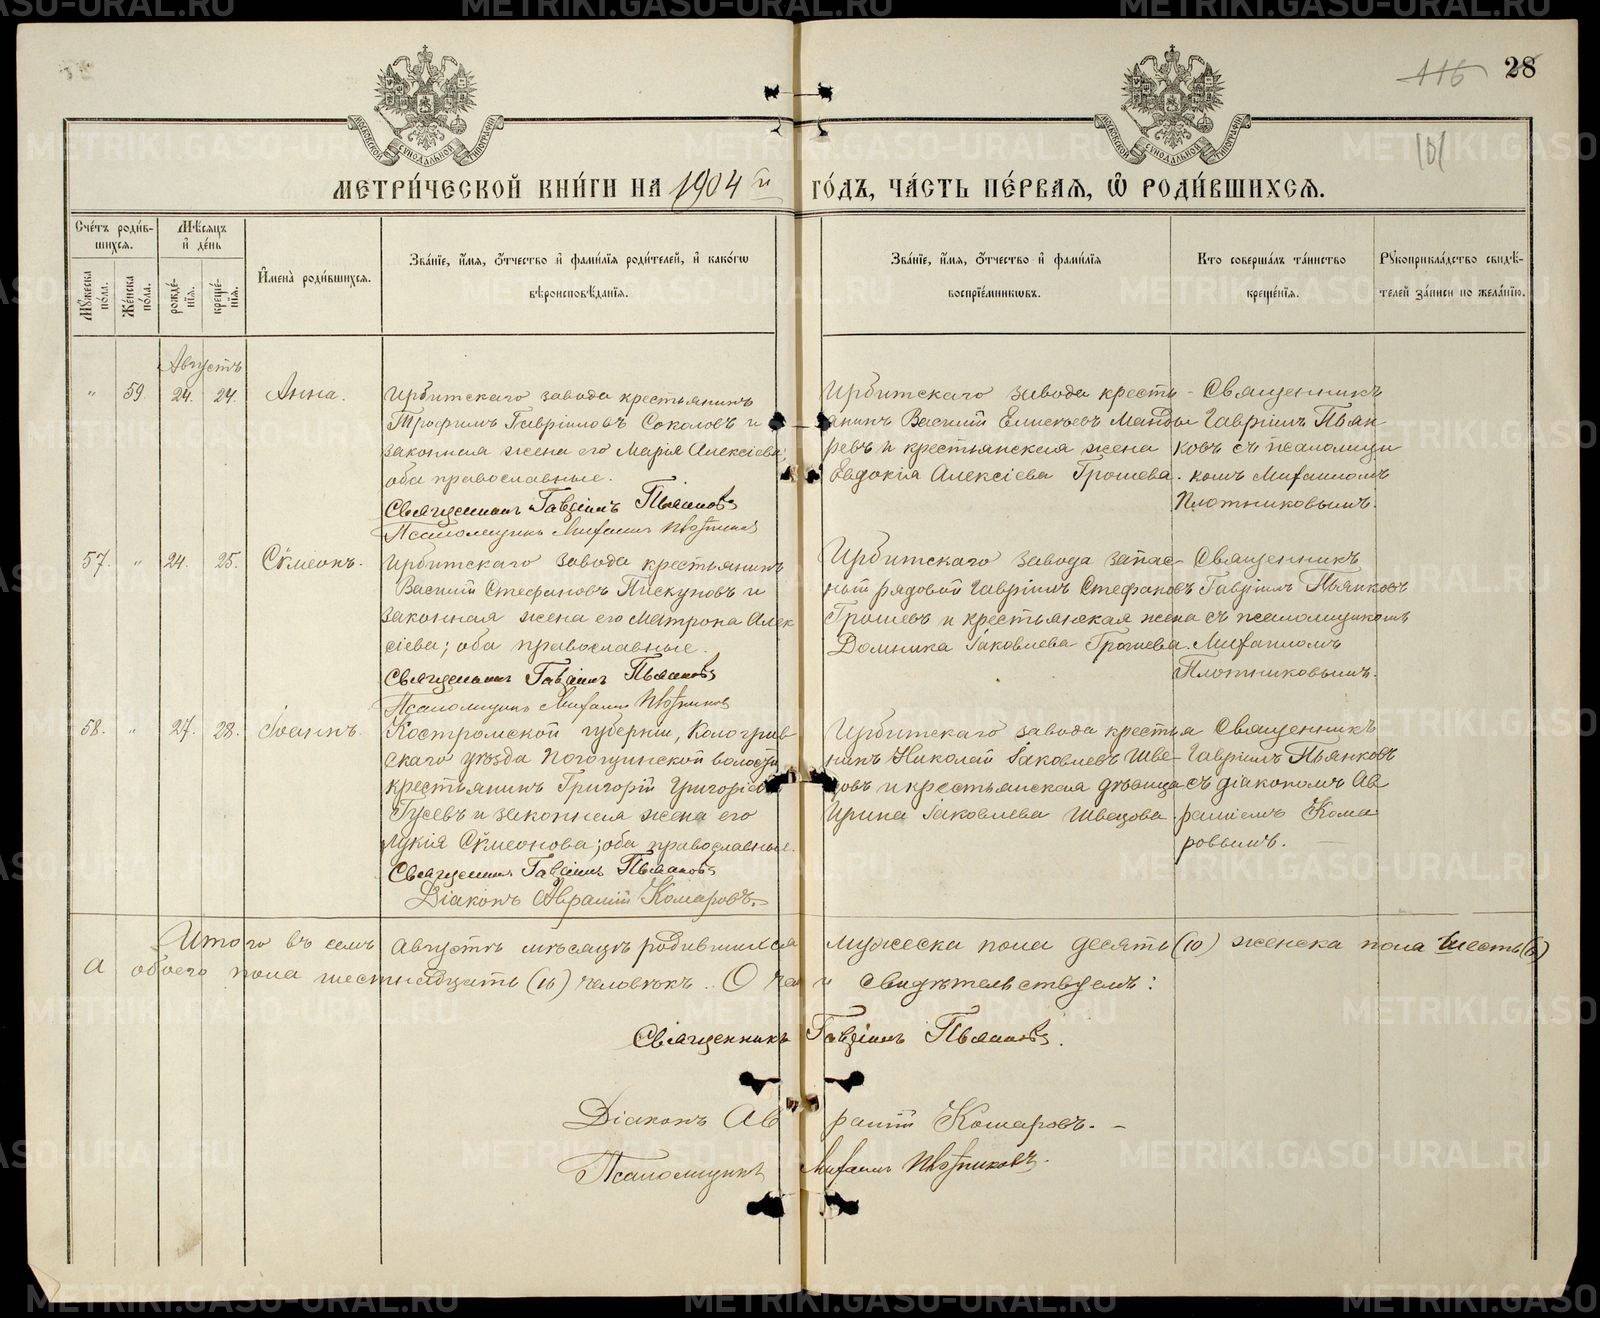 116 28
МЕТРИ́ЧЕСКОЙ КНИ́ГИ НА 1904 й ГО́ДЪ, ЧА́СТЬ ПЕ́РВАЯ, Ѽ РОДИ́ВШИХСЯ.
Сче́тъ роди́вшихся.
Му́жеска по́ла.
Же́нска по́ла.
Мѣ́сяцъ и҆ де́нь
рожде́нїя.
креще́нїя.
И҆мена̀ роди́вшихся.
Зва́нїе, и҆́мя, ѻ҆́тчество и҆ фами́лїя роди́телей, и҆ како́гѡ вѣроисповѣ́данїя.
Зва́нїе, и҆́мя, ѻ҆́тчество и҆ фами́лїя воспрїе́мникѡвъ.
Кто соверша́лъ та́инство креще́нїя.
Рꙋкоприкла́дство свидѣ́телей за́писи по жела́нїю.
Августъ
" 59. 24. 24. Анна.
Ирбитскаго завода крестьянинъ
Трофимъ Гавріиловъ Соколовъ и
законная жена его Марія Алексіева;
оба православные.
Священникъ Гавріилъ Пьянковъ
Псаломщикъ Михаилъ Плотниковъ
Ирбитскаго завода кресть-
янинъ Василій Елисеевъ Манды
ревъ и крестьянская жена
Евдокія Алексіева Грошева.
Священникъ
Гавріилъ Пьян-
ковъ съ псаломщи
комъ Михаиломъ
Плотниковымъ.
57. " 24. 25. Сѵмеонъ.
Ирбитскаго завода крестьянинъ
Василій Стефановъ Пискуновъ и
законная жена его Матрона Алек
сіева; оба православные.
Священникъ Гавріилъ Пьянковъ
Псаломщикъ Михаилъ Плотниковъ
Ирбитскаго завода запас-
ный рядовой Гавріилъ Стефановъ
Грошевъ и крестьянская жена
Домника Іаковлева Грошева.
Священникъ
Гавріилъ Пьянковъ
съ псаломщикомъ
Михаиломъ
Плотниковымъ.
58. " 27. 28. Іоаннъ.
Костромской губерніи, Кологрив
скаго уѣзда волости
крестьянинъ Григорій Григоріевъ
Гусевъ и законная жена его
Лукія Сѵмеонова; оба православные.
Священникъ Гавріилъ Пьянковъ
Діаконъ Аврамій Комаровъ.
Ирбитскаго завода крестья
нинъ Николай Іаковлевъ Шве-
цовъ и крестьянская дѣвица
Ирина Іаковлева Швецова.
Священникъ
Гавріилъ Пьянковъ
съ діакономъ Ав
раміемъ Кома
ровымъ.
Итого въ семъ Августѣ мѣсяцѣ родившихся мужеска пола десять (10) женска пола шесть (6)
а обоего пола шестнадцать (16) человѣкъ. О чемъ и свидѣтельствуемъ:
Священникъ Гавріилъ Пьянковъ.
Діаконъ Аврамій Комаровъ.
Псаломщикъ Михаилъ Плотниковъ.
METRIKI.GASO-URAL.RU